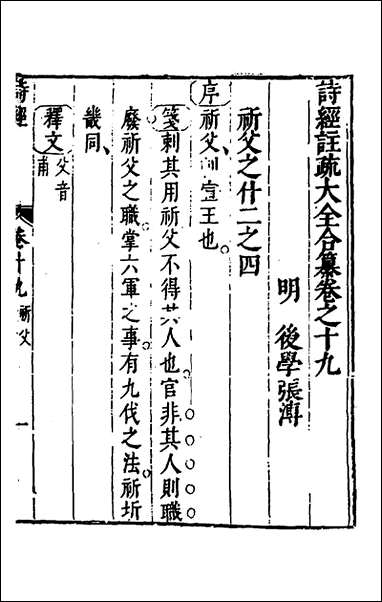 詩經註疏大全合纂卷之十九
明 後學張溥
祈父之什二之四
序 祈父、刺宣王也。
箋 刺其用祈父不得其人也官非其人則職
廢祈父之職掌六軍之事有九伐之法祈圻
畿同、
釋文 父音
甫
詩經 卷十九 祈父 一